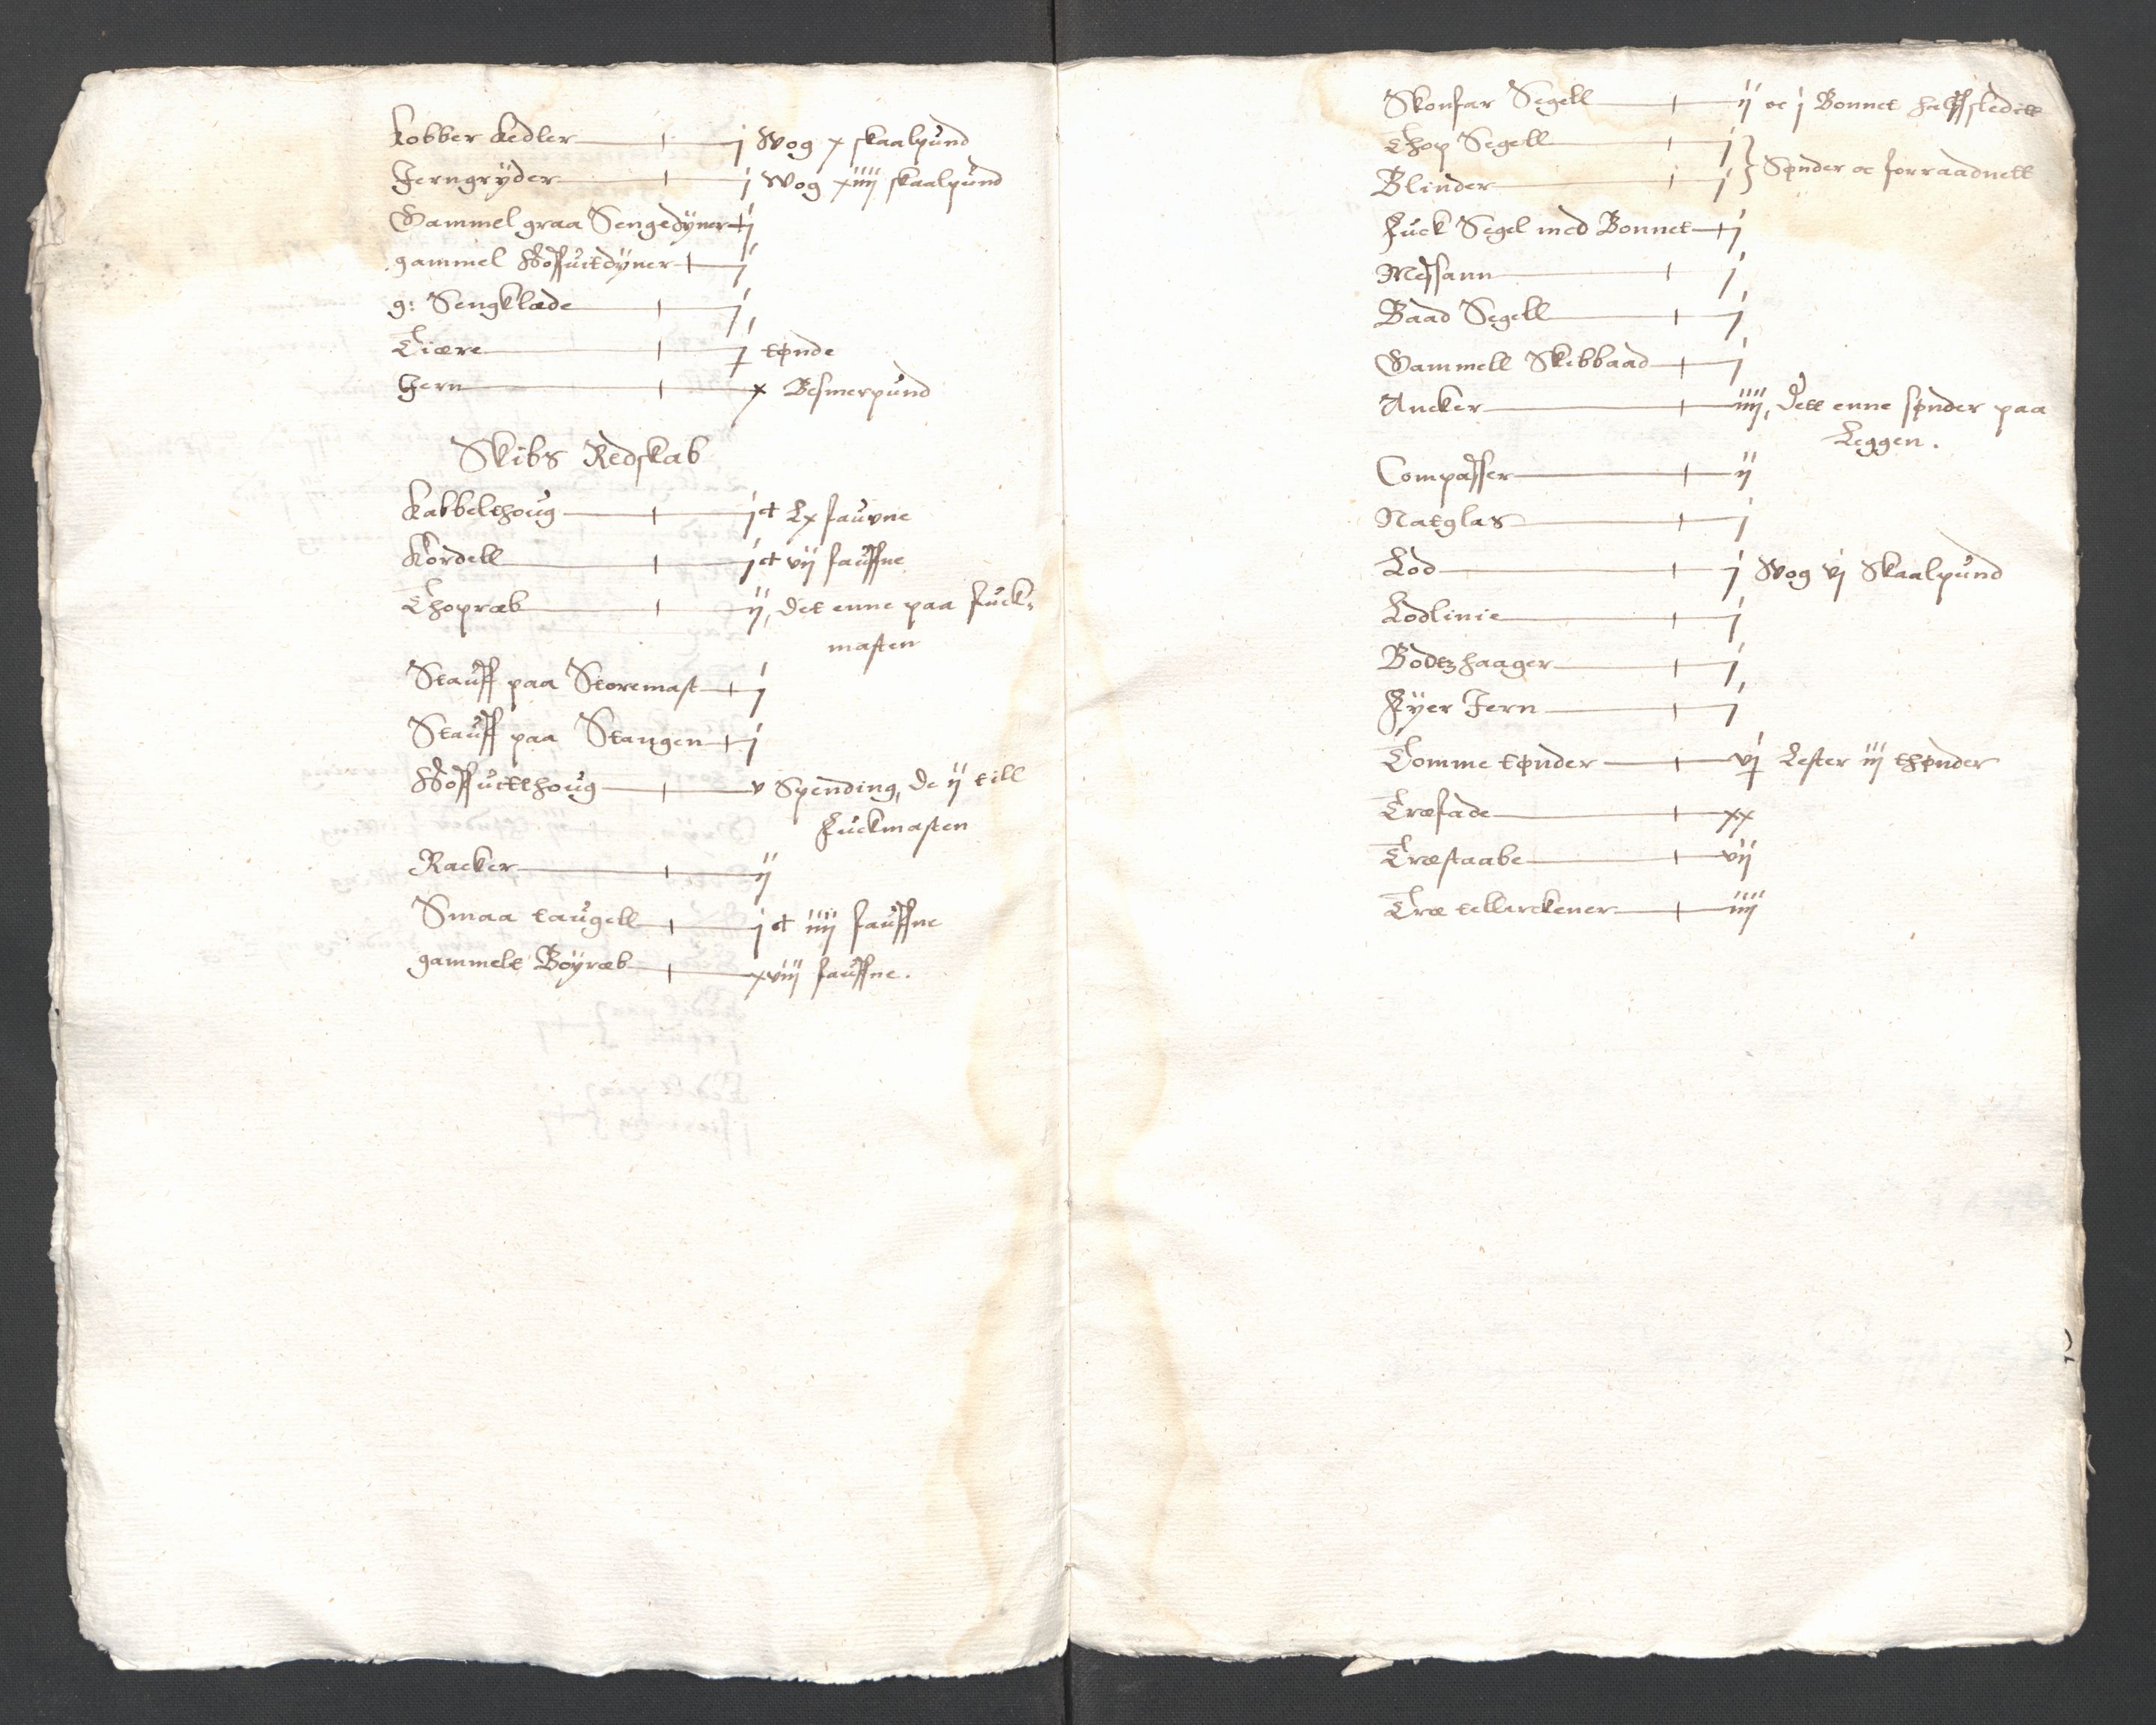 Kobber Kedler j Wog x skaalpund
Jerngryder j Wog xiiij skaalpund
Gammel graa Sengedyner j
gammel Hoffuitdyner j
g: Sengklæde j
Tiære j tønde
Jern x Besmerpund
Skibs Redskab
Kabbelthoug jct Lx fauvne
Kordell jct vij fauffne
Thopræb ij, det enne paa fuck-
masten
Stauff paa Storemast j
Stauff paa Stangen j
Hoffuitthoug v Spending, de ij till
Fuckmasten
Racker ij
Smaa taugell jct iiij fauffne
gammelt Böyræb xviij fauffne.
Skonfar Segell ij oc j Bonnet halffsledett
Thop Segell j
Blinder j } Sønder oc forraadnett
Fuck Segel med Bonnet j
Messann j
Baad Segell j
Gammell Skibbaad j
Ancker iiij, dett enne sønder paa
Leggen.
Compasser ij
Natglas j
Lod j Wog vj Skaalpund
Lodlinie j
Bodtzhaager j
Fyer Jern j
Tomme tønder vj Lester iij thønder
Træfade xx
Træstaabe vij
Træ tellerckener iiij